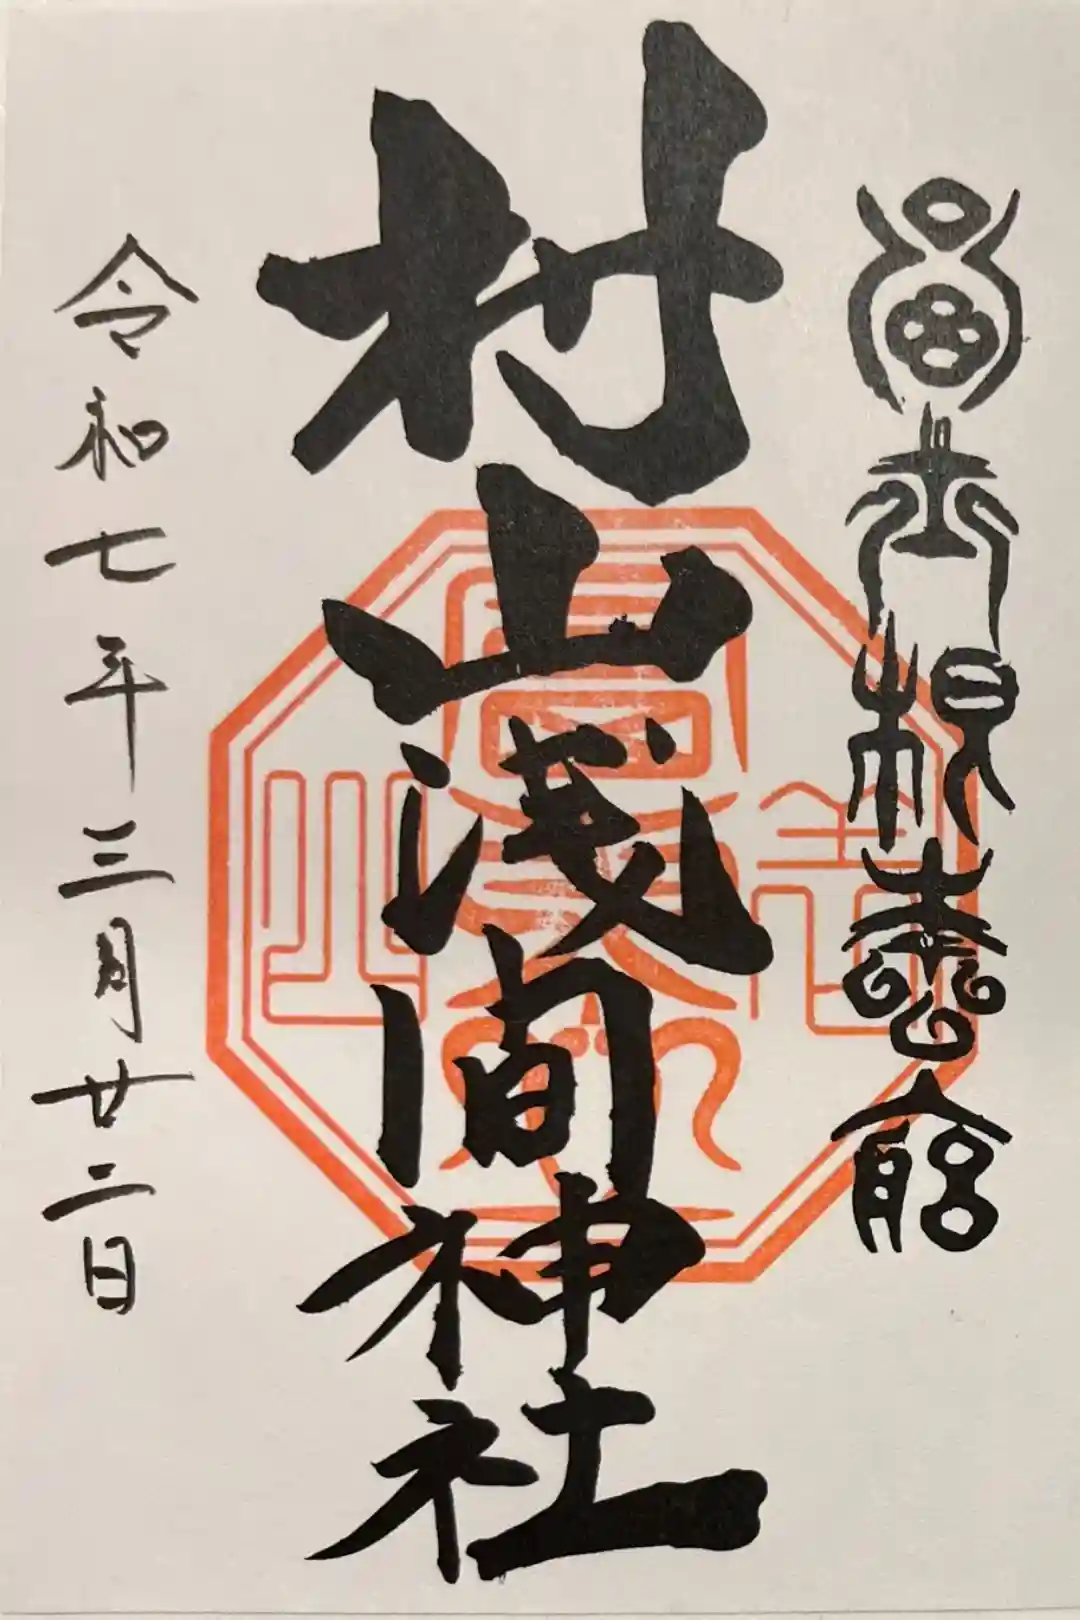 冨士根本宮
村山浅間神社
令和七年三月廿二日